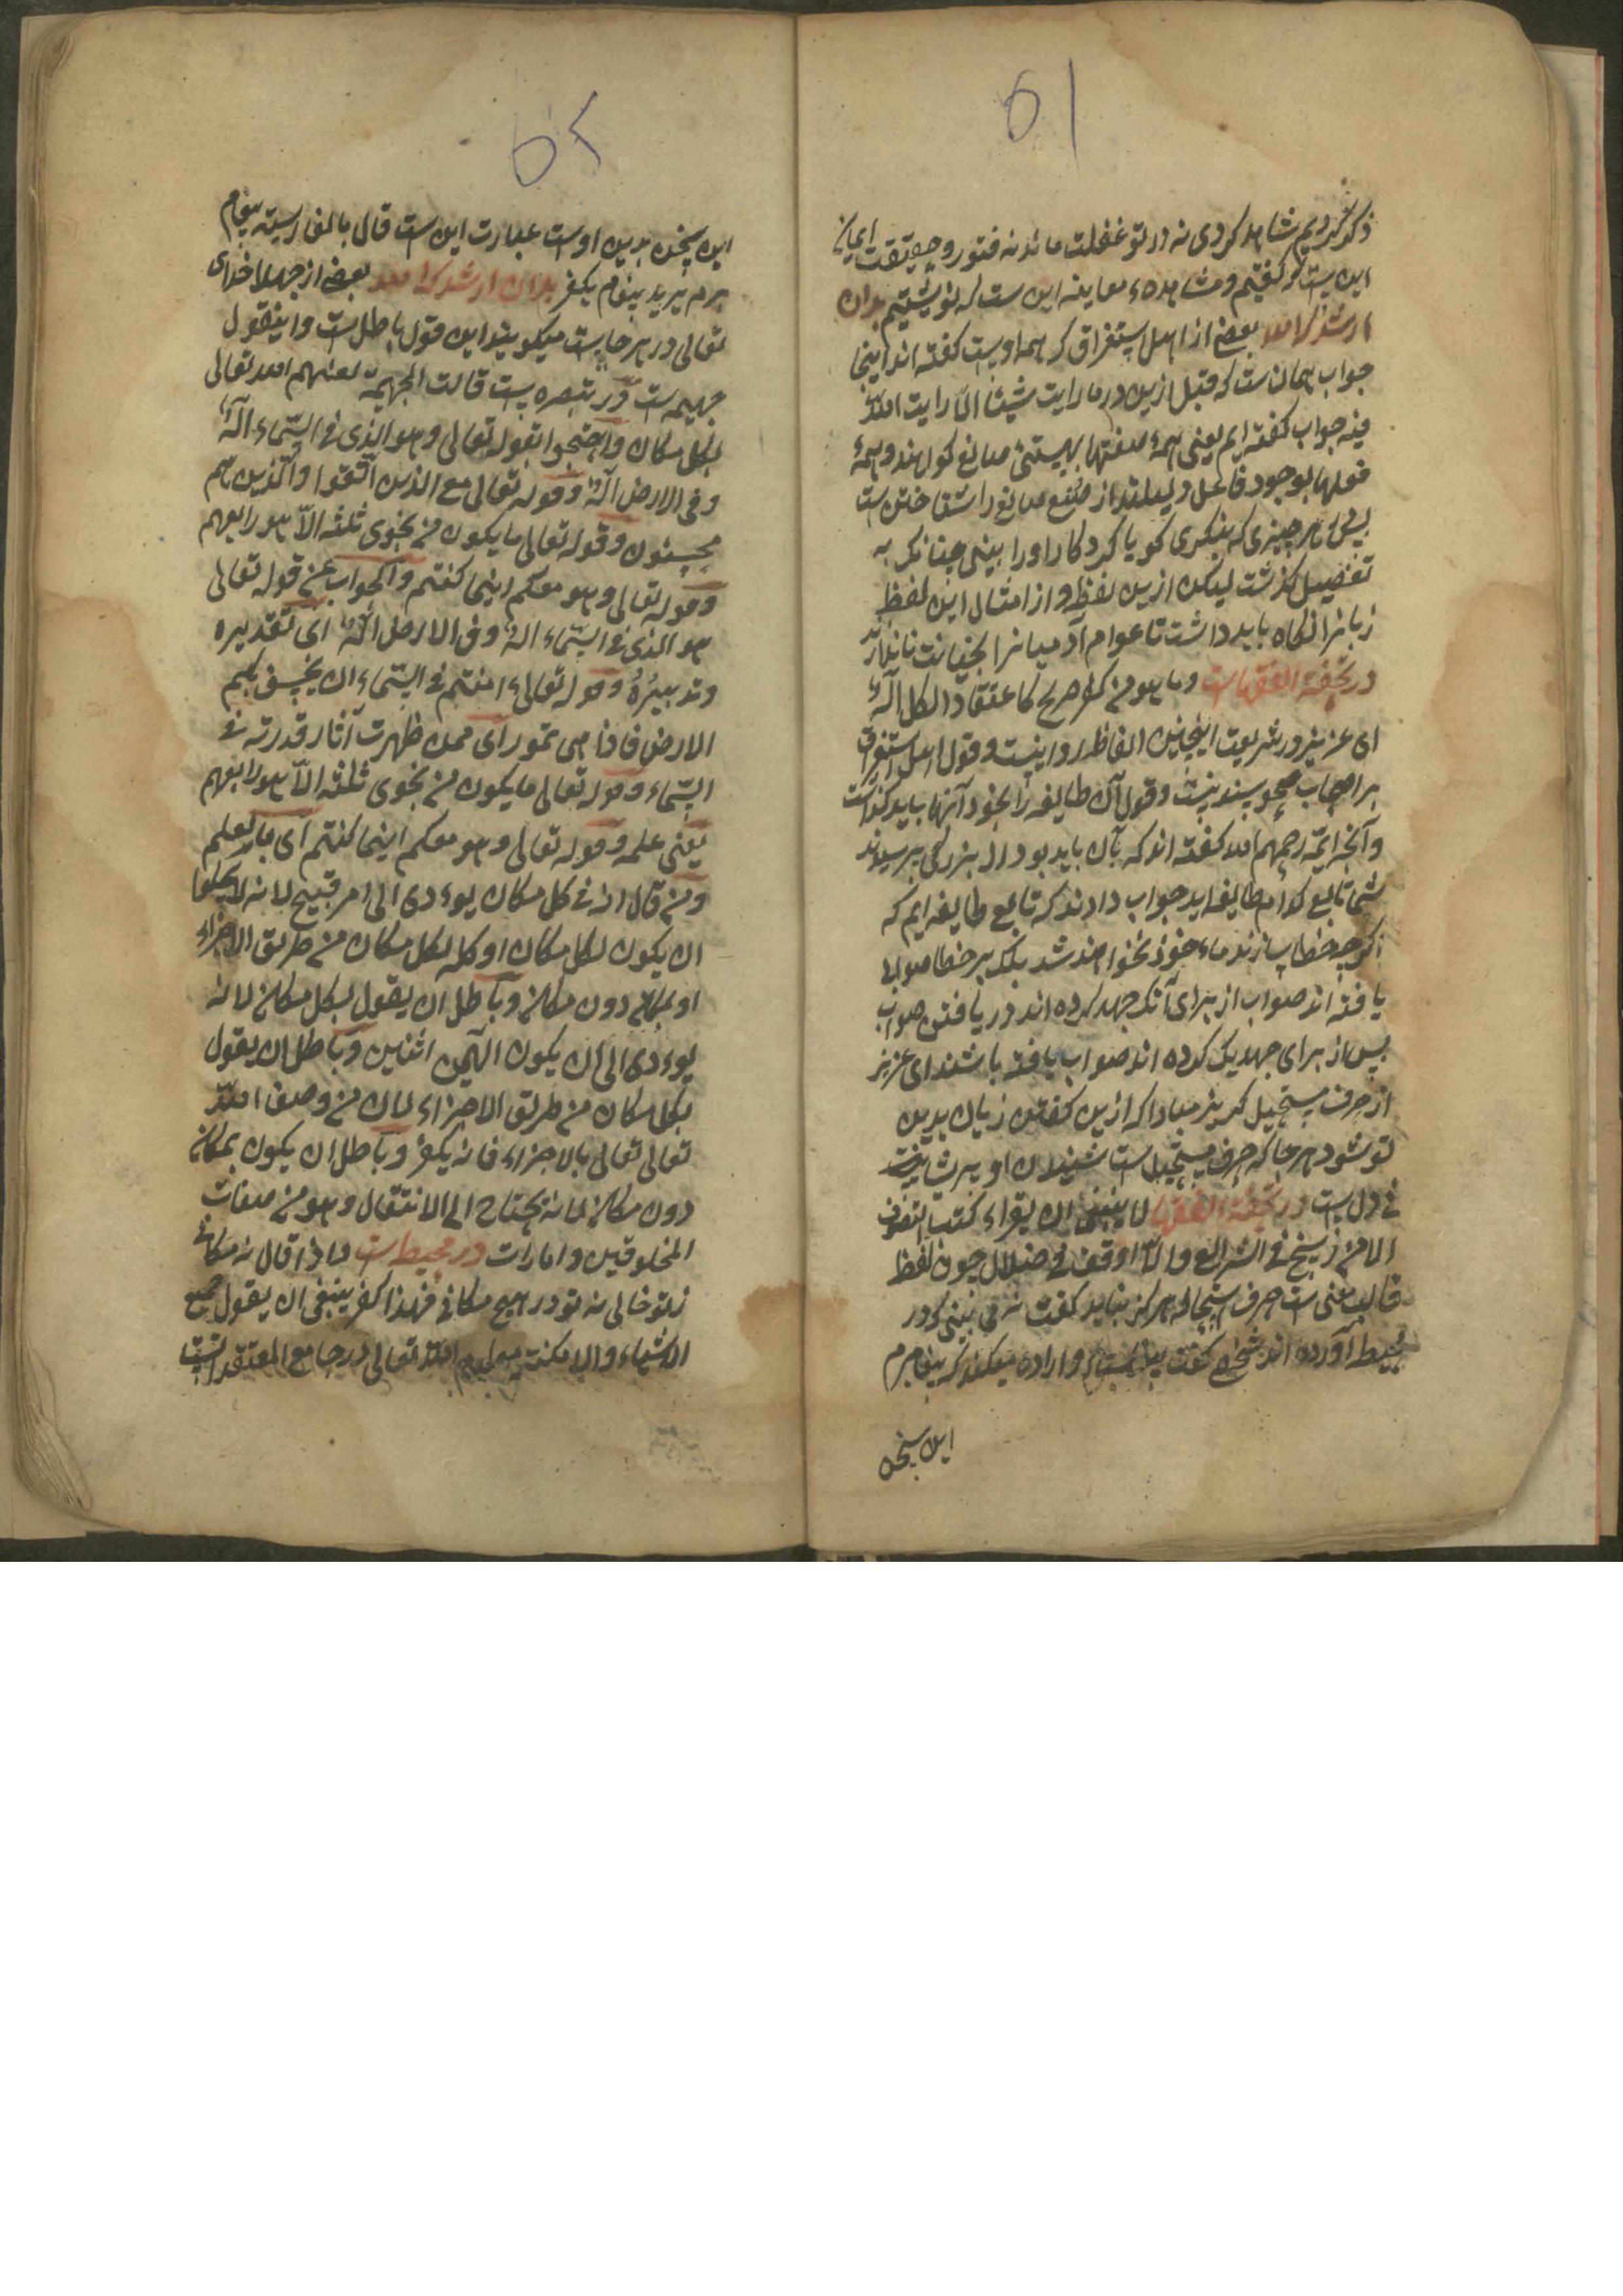 ۵۱
ذکر کردیم شاهد کردی نه در تو غفلت ماند نه فتور و حقیقت ایمان
این ست که گفتیم و مشاهده و معاینه این ست که نوشتیم بدان
ارشدک الله بعضی از اهل استغراق که همه اوست گفته اند اینجا
جواب همان ست که قبل ازین در ما رایت شیئا الا رایت الله
فیه جواب گفته ایم یعنی همهٔ صنعتها بهستیٔ صانع کواهند و همهٔ
فعلها بوجود فاعل دلیلند از صنع صانع را شناختن ست
پس هر چیزی که بنکری کویا کردکار او را بینی چنانکه به
تفصیل گذشت لیکن ازین لفظ و از امثال این لفظ
زبانرا نگاه باید داشت تا عوام آدمیانرا بخیانت نیندازد
در تحفة الفقهاست وما هو من کفر صریح کاعتقاد الکل اله
ای عزیز در شریعت اینچنین الفاظ روا نیست و قول اهل استغراق
بر اصحاب صحو سند نیست و قول آن طایفه را بخود آنها باید گذاشت
و آنچه ائمه رحمهم الله گفته اند که بآن باید بود از بزرگی پرسیدند
شما تابع کدام طایفه اید جواب دادند که تابع طایفه ایم که
اگر چه خطا سازند ماخوذ نخواهند شد بلکه بر خطا صواب
یافته اند صواب از برای آنکه جهد کرده اند در یافتن صواب
پس از برای جهدیکه کرده اند صواب یافته باشند ای عزیز
از حرف مستحیل کریز مبادا که ازین گفتن زیان بدین
تو شود هر جا که حرف مستحیل ست شنیدن او پریشانیت
فی دل ست در تحفة الفقها لا ینبغی ان یقراء کتب التصوف
الا من رسخ فی الشرائع والا اوقف فی ضلال چون لفظ
قالب معنی ست حرف استحاله هرگز نباید گفت نمی بینی که در
محیط آورده اند شخصی گفت و اراده میکند که بیغامبرم
این سخن
۵۲
این سخن بدین اوست عبارت این ست قال بالفارسیة بیغام
برم یرید بیغام یکفر بدان ارشدک الله بعضی از جهلا خدای
تعالی در هر جاست میگویند این قول باطل ست و اینقول
جهیمه ست در تبصره است قالت الجهیمة لعنهم الله تعالی
بکل مکان واحتجوا بقوله تعالی وهو الذی فی السماء اله
وفی الارض اله وقوله تعالی مع الذین اتقوا والذین هم
محسنون وقوله تعالی ما یکون من نجوی ثلثه الا هو رابعهم
وقوله تعالی وهو معکم اینما کنتم والجواب عن قوله تعالی
هو الذی فی السماء اله وفی الارض اله ای تقدیره
وتدبیره وقوله تعالی ءامنتم من فی السماء ان یخسف بکم
الارض فاذا هی تمور ای ممن ظهرت آثار قدرته فی
السماء وقوله تعالی ما یکون من نجوی ثلثه الا هو رابعهم
یعنی علمه وقوله تعالی وهو معکم اینما کنتم ای بالعلم
ومن قال انه فی کل مکان یوءدی الی امر قبیح لانه لا یخلوا
ان یکون لکل مکان او کله لکل مکان من طریق الاجزاء
او بمکان دون مکان وباطل ان یقول لکل مکان لانه
یوءدی الی ان یکون الهین اثنین وباطل ان یقول
بکل مکان من طریق الاجزاء لان من وصف الله
تعالی تعالی بالاجزاء فانه یکفر وباطل ان یکون بمکان
دون مکان لانه یحتاج الی الانتقال وهو من صفات
المخلوقین وامارات در محیط ست واذا قال نه مکانی
زتو خالی نه تو در هیچ مکانی فهذا کفر ینبغی ان یقول جمیع
الاشیاء والامکنة معلوم الله تعالی در جامع المعتقد است